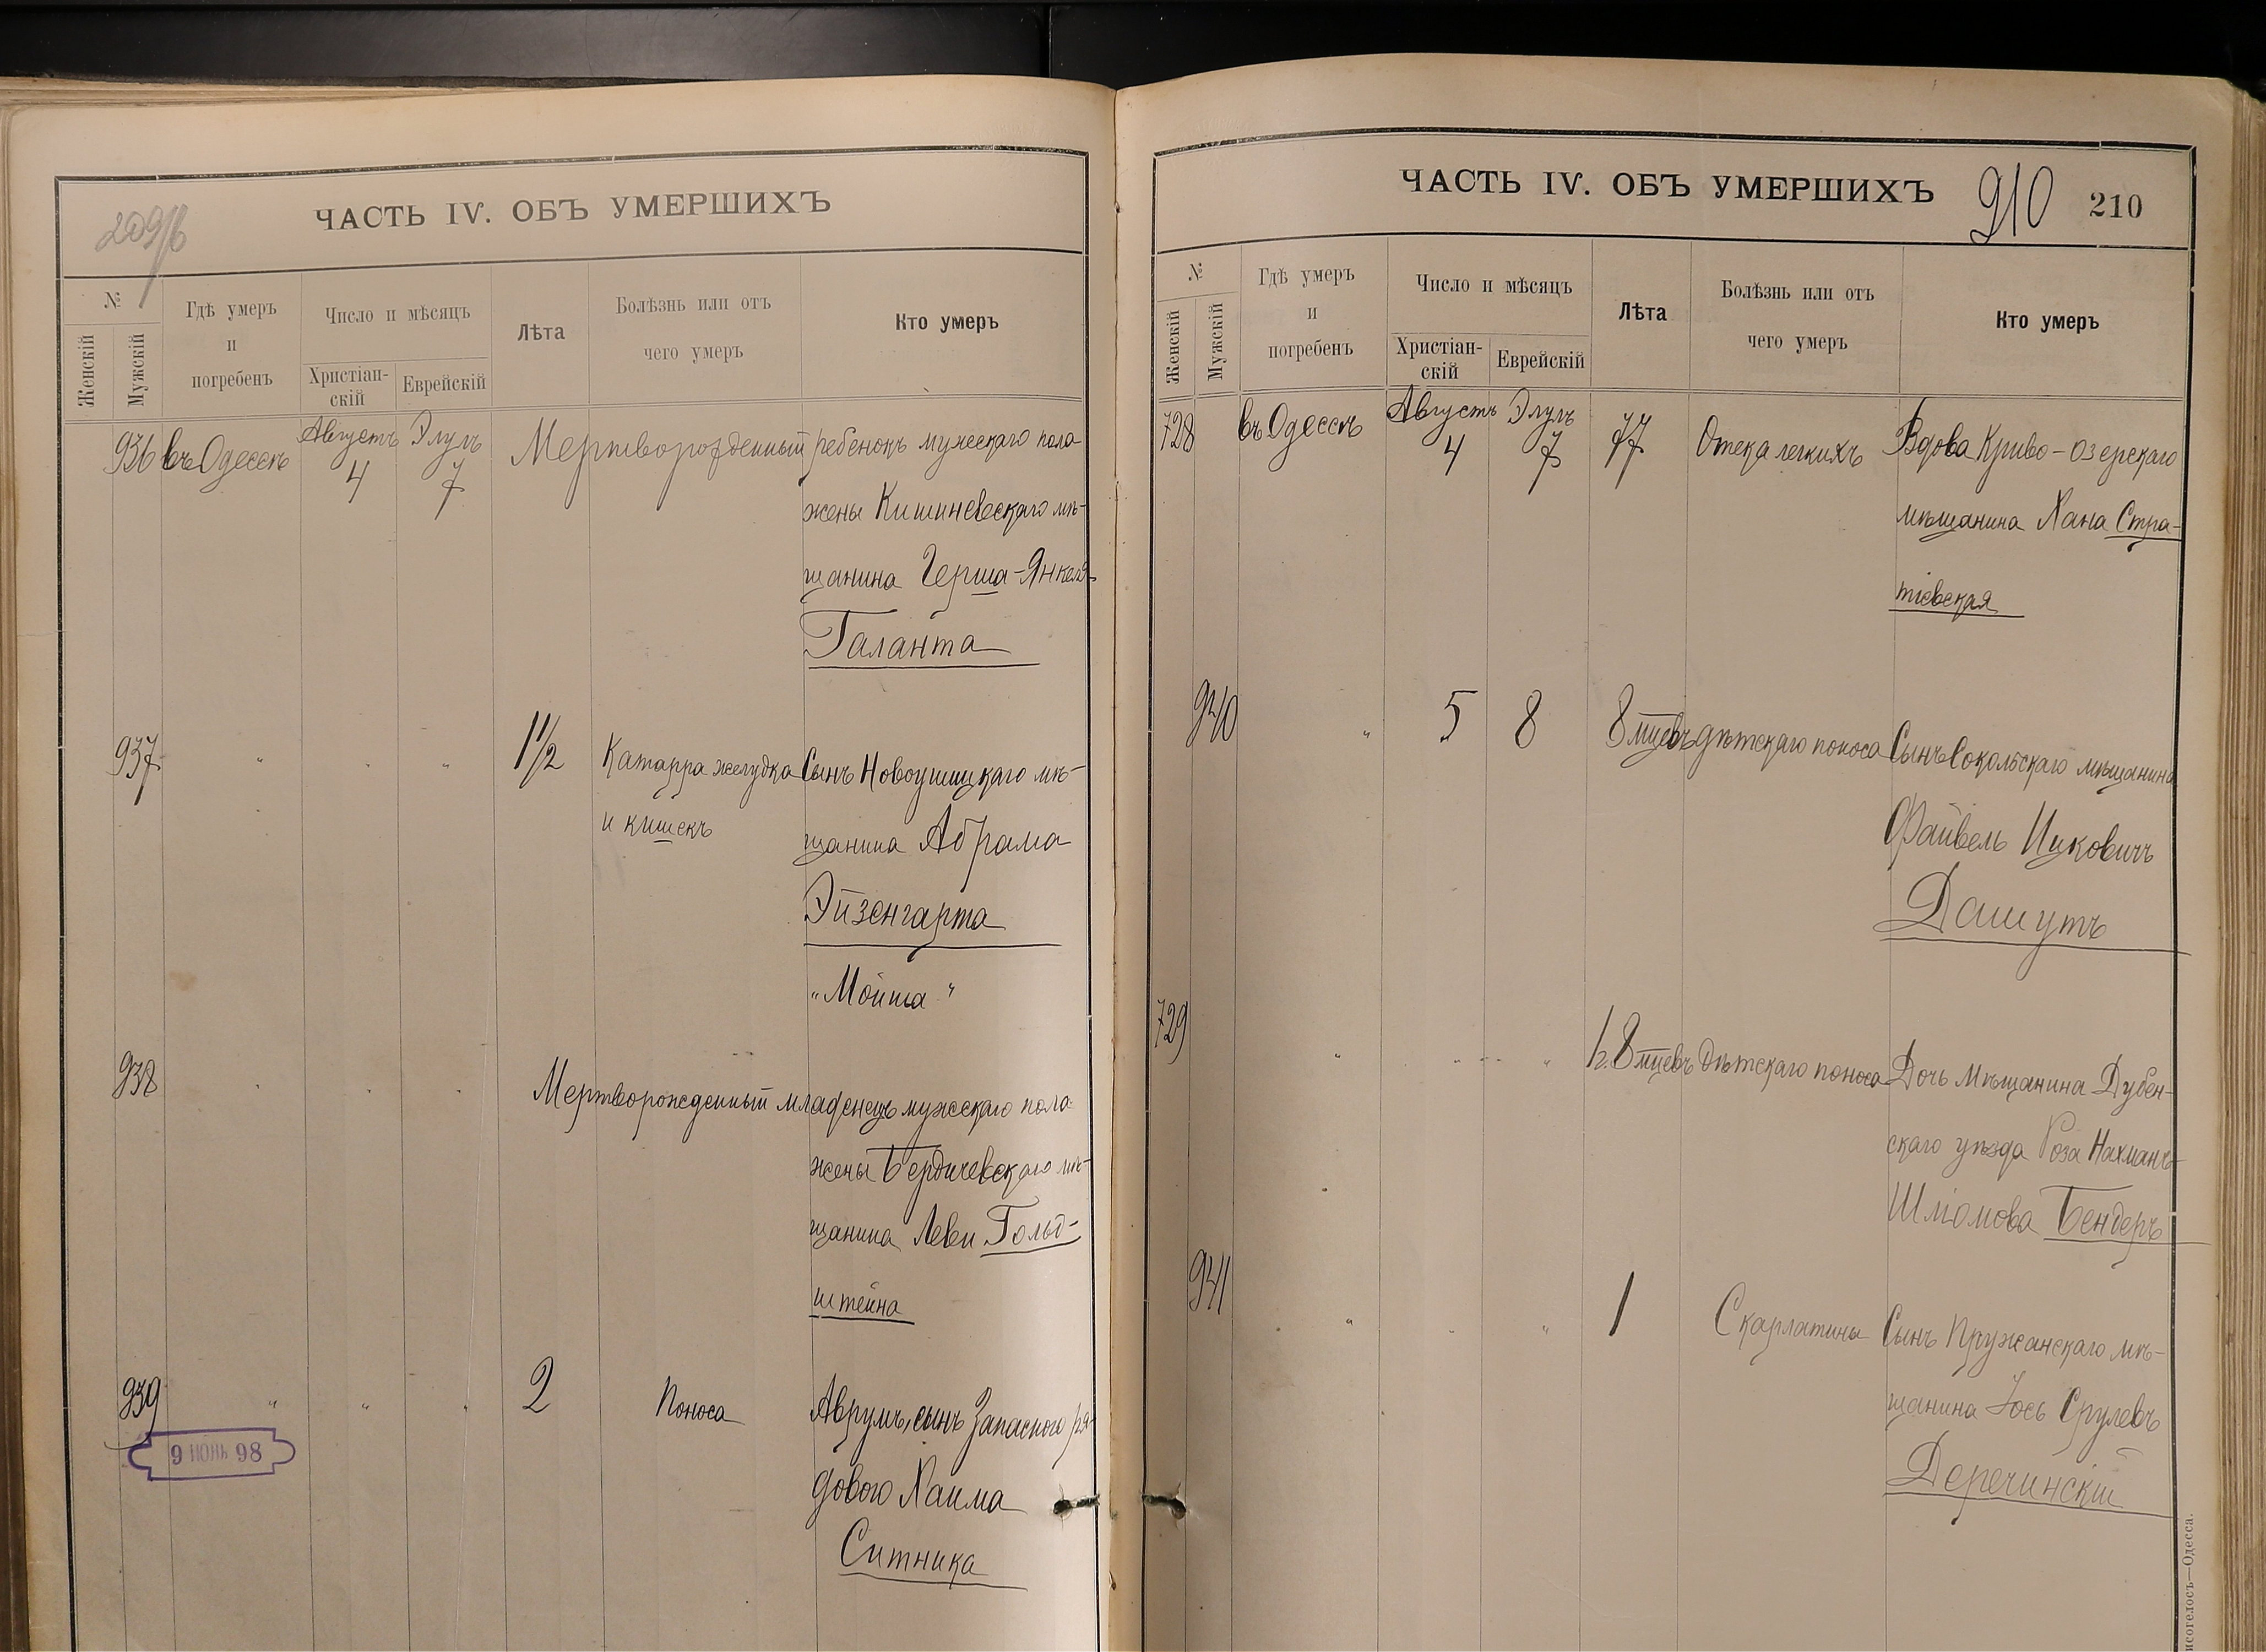 209/б
ЧАСТЬ IV. ОБЪ УМЕРШИХЪ
№
Женскій
Мужскій
Гдѣ умеръ
и
погребенъ
Число и мѣсяцъ
Христіан-
скій
Еврейскій
Лѣта
Болѣзнь или отъ
чего умеръ
Кто умеръ
936 въ Одессѣ Августъ Элулъ Мертворожденный ребенокъ мужескаго пола
4 7
жены Кишиневскаго мѣ-
щанина Герша-Янкеля
Галанта
937 " " " 1 1/2 Катарра желудка Сынъ Новоушицкаго мѣ-
и кишекъ
щанина Абрама
Эйзенгарта
"Мойша"
938 " " " Мертворожденный младенецъ мужескаго пола
жены Бердичевскаго мѣ-
щанина Леви Гольд-
штейна
939 " " " 2 Поноса Аврумъ, сынъ Запаснаго ря-
дового Хаима
Ситника
9 ИЮНЬ 98
ЧАСТЬ IV. ОБЪ УМЕРШИХЪ 210 210
№
Женскій
Мужскій
Гдѣ умеръ
и
погребенъ
Число и мѣсяцъ
Христіан-
скій
Еврейскій
Лѣта
Болѣзнь или отъ
чего умеръ
Кто умеръ
728 въ Одессѣ Августъ Элулъ 77 Отека легкихъ Вдова Криво-озерскаго
4 7
мѣщанина Хана Стра-
тіевская
940 " 5 8 8 мцевъ дѣтскаго поноса Сынъ Сокольскаго мѣщанина
Файвель Ицковичъ
Дашутъ
729 " " " 1 г. 8 мцевъ Дѣтскаго поноса Дочь мѣщанина Дубен-
скаго уѣзда Роза Нахманъ-
Шліомова Бендеръ
941 " " " 1 Скарлатины Сынъ Пружанскаго мѣ-
щанина Іось Срулевъ
Деречинскій
исогелосъ—Одесса.